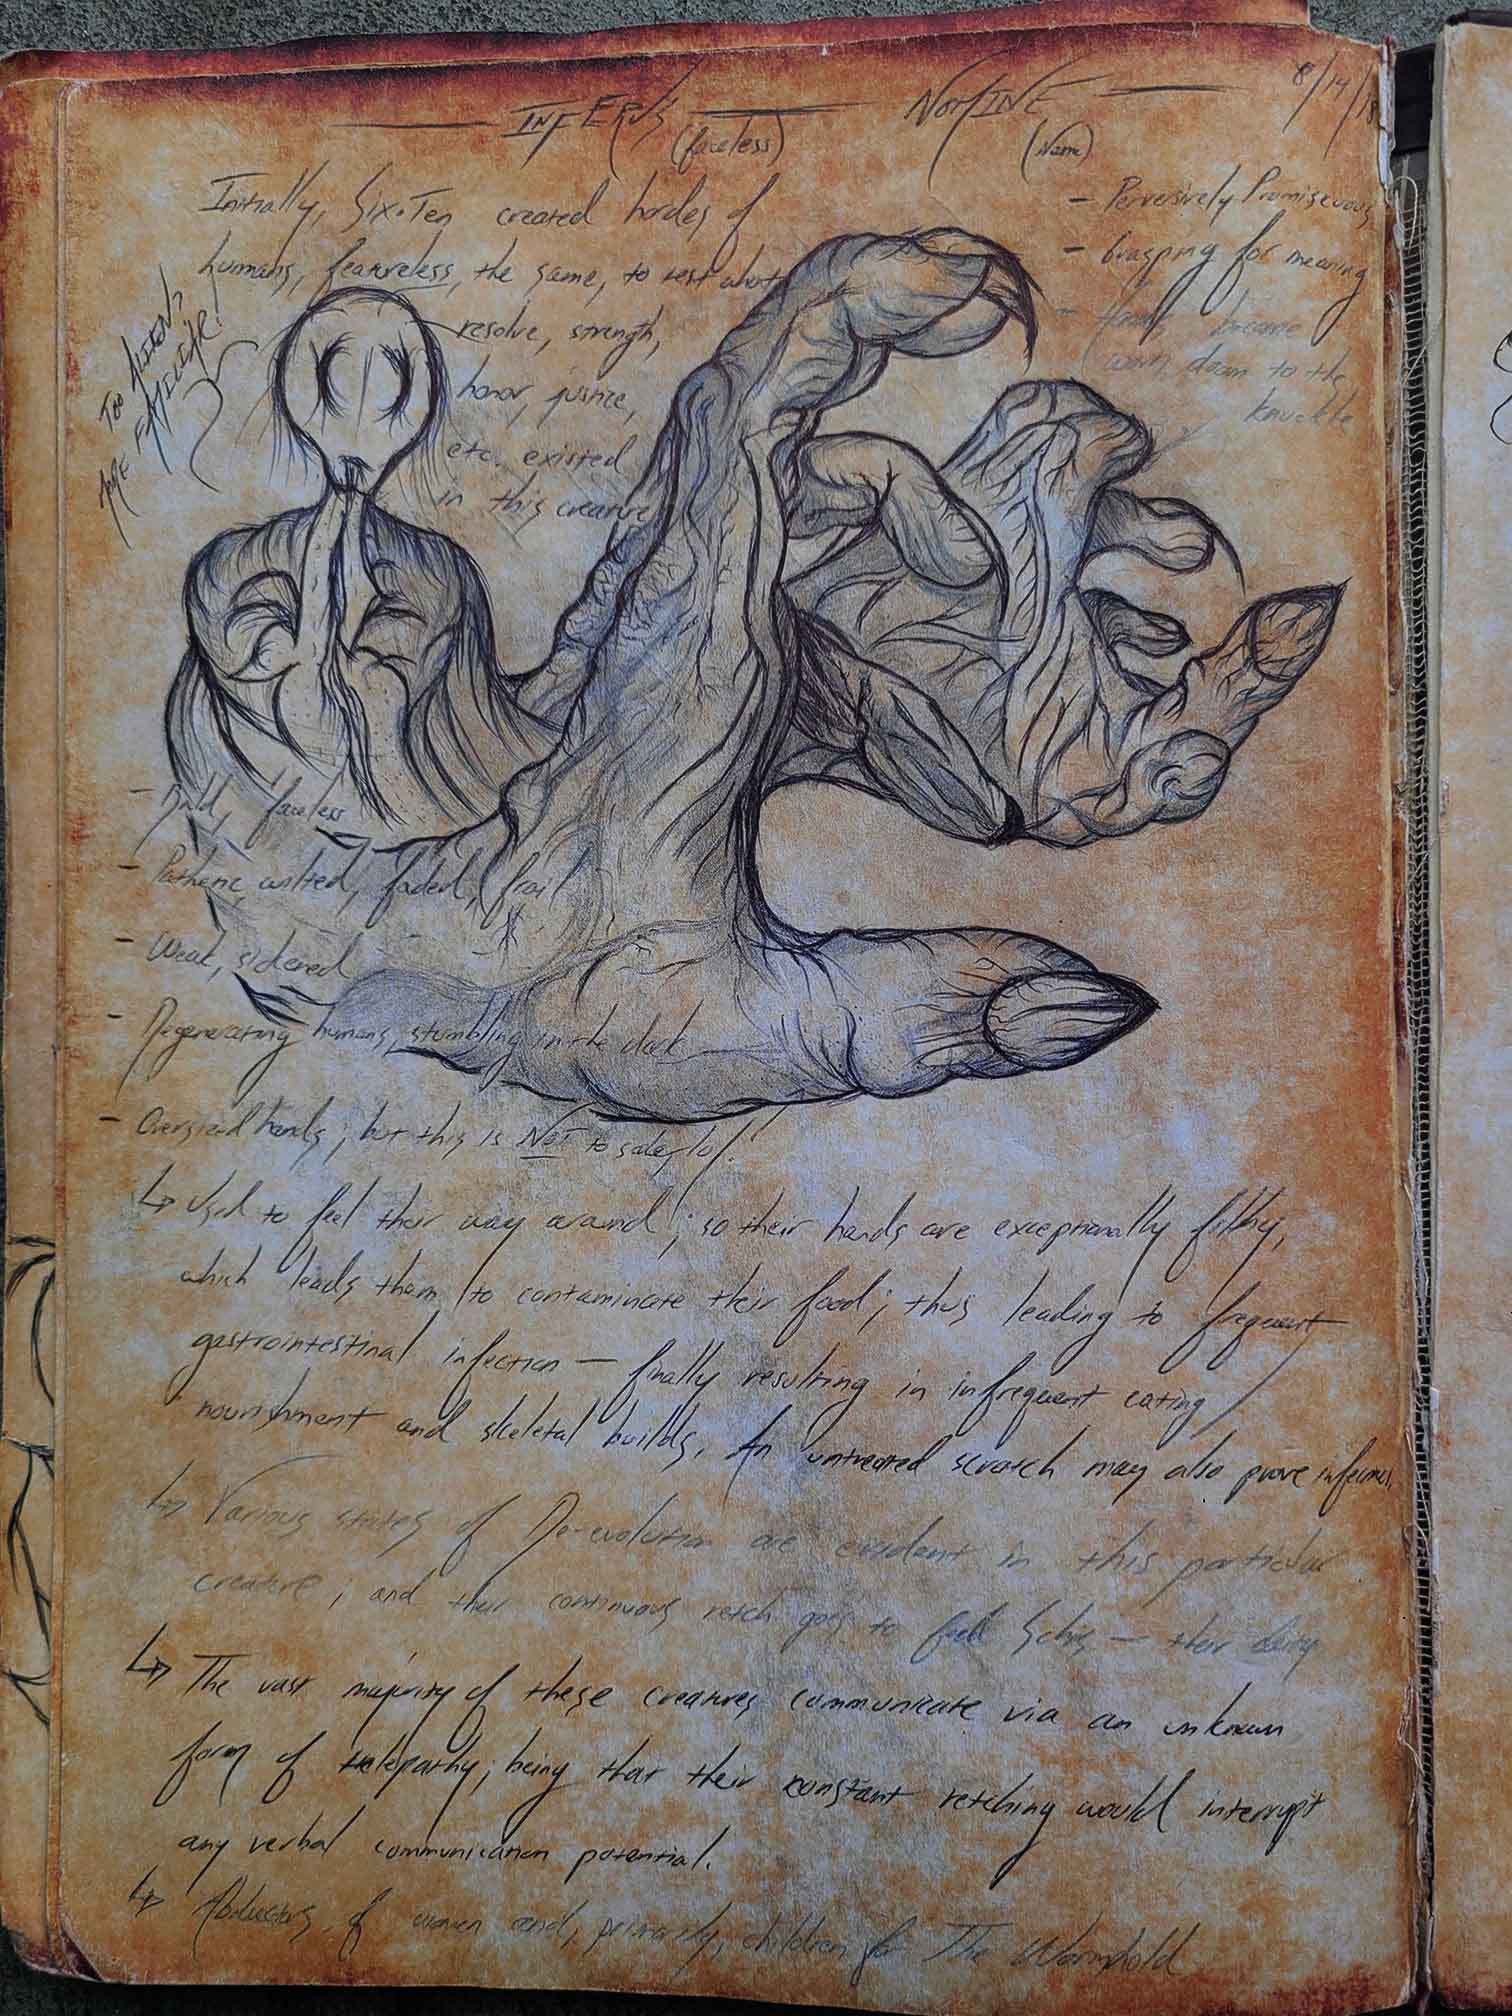 INFERUS NOMINE
(faceless) (Name)
8/14/18
Initially, Six-Ten created hordes of
humans, featureless, the same, to test what
resolve, strength,
honor, justice,
etc. existed
in this creature
TOO ALIEN,
MORE FAMILIAR!
- Perversively Promiscuous
- Grasping for meaning
- Hands become
worn down to the
knuckle
- Bald, faceless
- Pathetic, wilted, faded, frail
- Weak, sickened
- Degenerating humans, stumbling in the dark
- Oversized hands; but this is NOT to scale, lol!
↳ Used to feel their way around; so their hands are exceptionally filthy,
which leads them to contaminate their food; thus leading to frequent
gastrointestinal infection — finally resulting in infrequent eating/
nourishment and skeletal builds. An untreated scratch may also prove infectious.
↳ Various states of De-evolution are evident in this particular
creature; and their continuous retch goes to feed — their deity
↳ The vast majority of these creatures communicate via an unknown
form of telepathy; being that their constant retching would interrupt
any verbal communication potential.
↳ Abductors of women and, primarily, children for The Wormfold